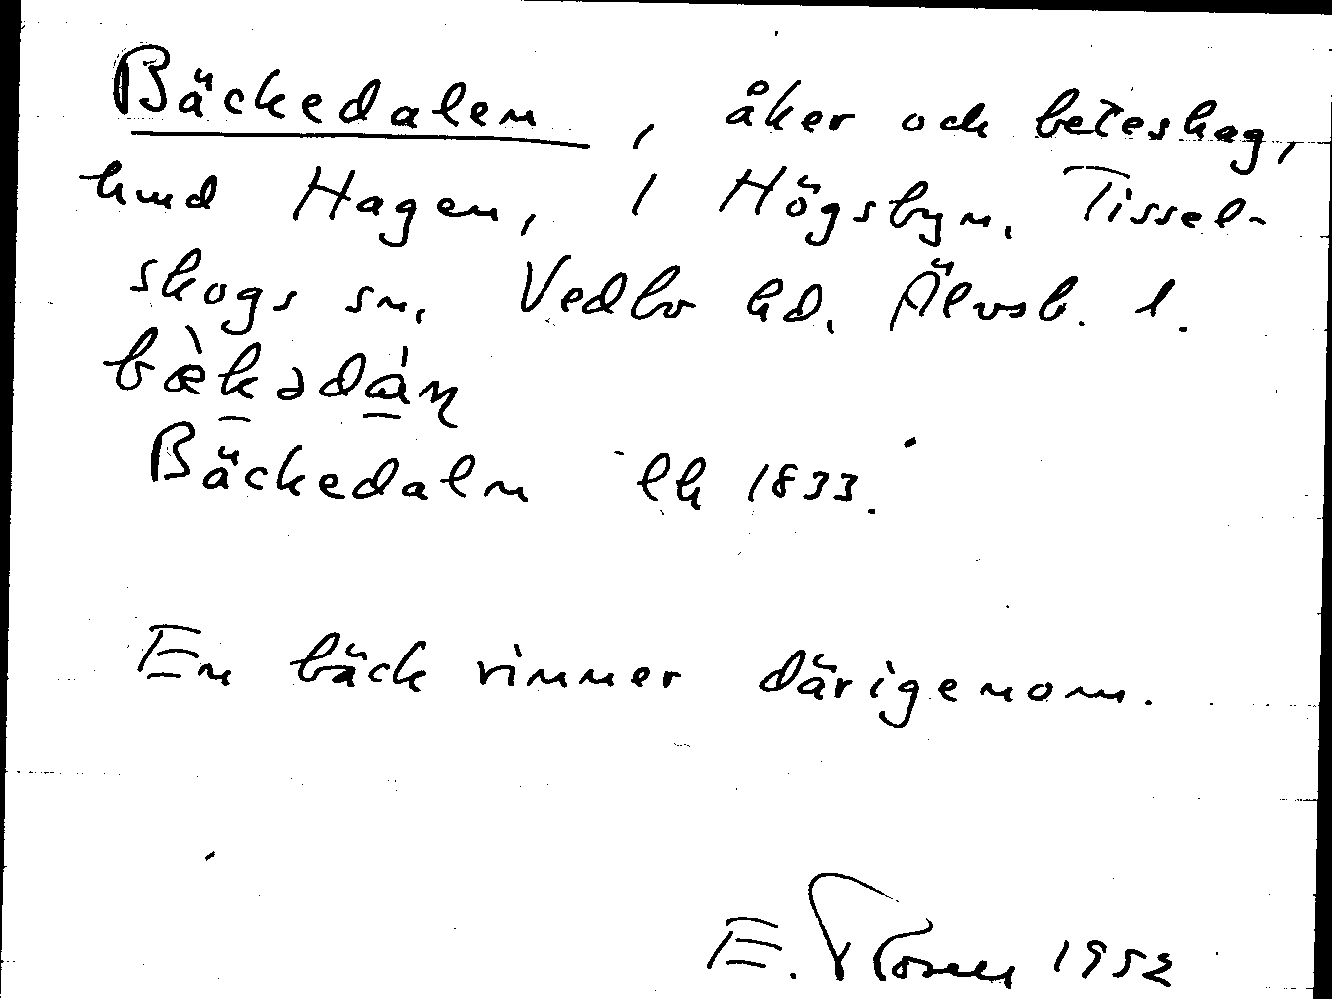 Bäckedalen, åker och beteshag,
hmd Hagen, i Högsbyn. Tissel-
skogs sn, Vedbo hd. Älvsb. l.
bæ̀kədán
Bäckedaln lh 1833.
En bäck rinner därigenom.
E. 1952